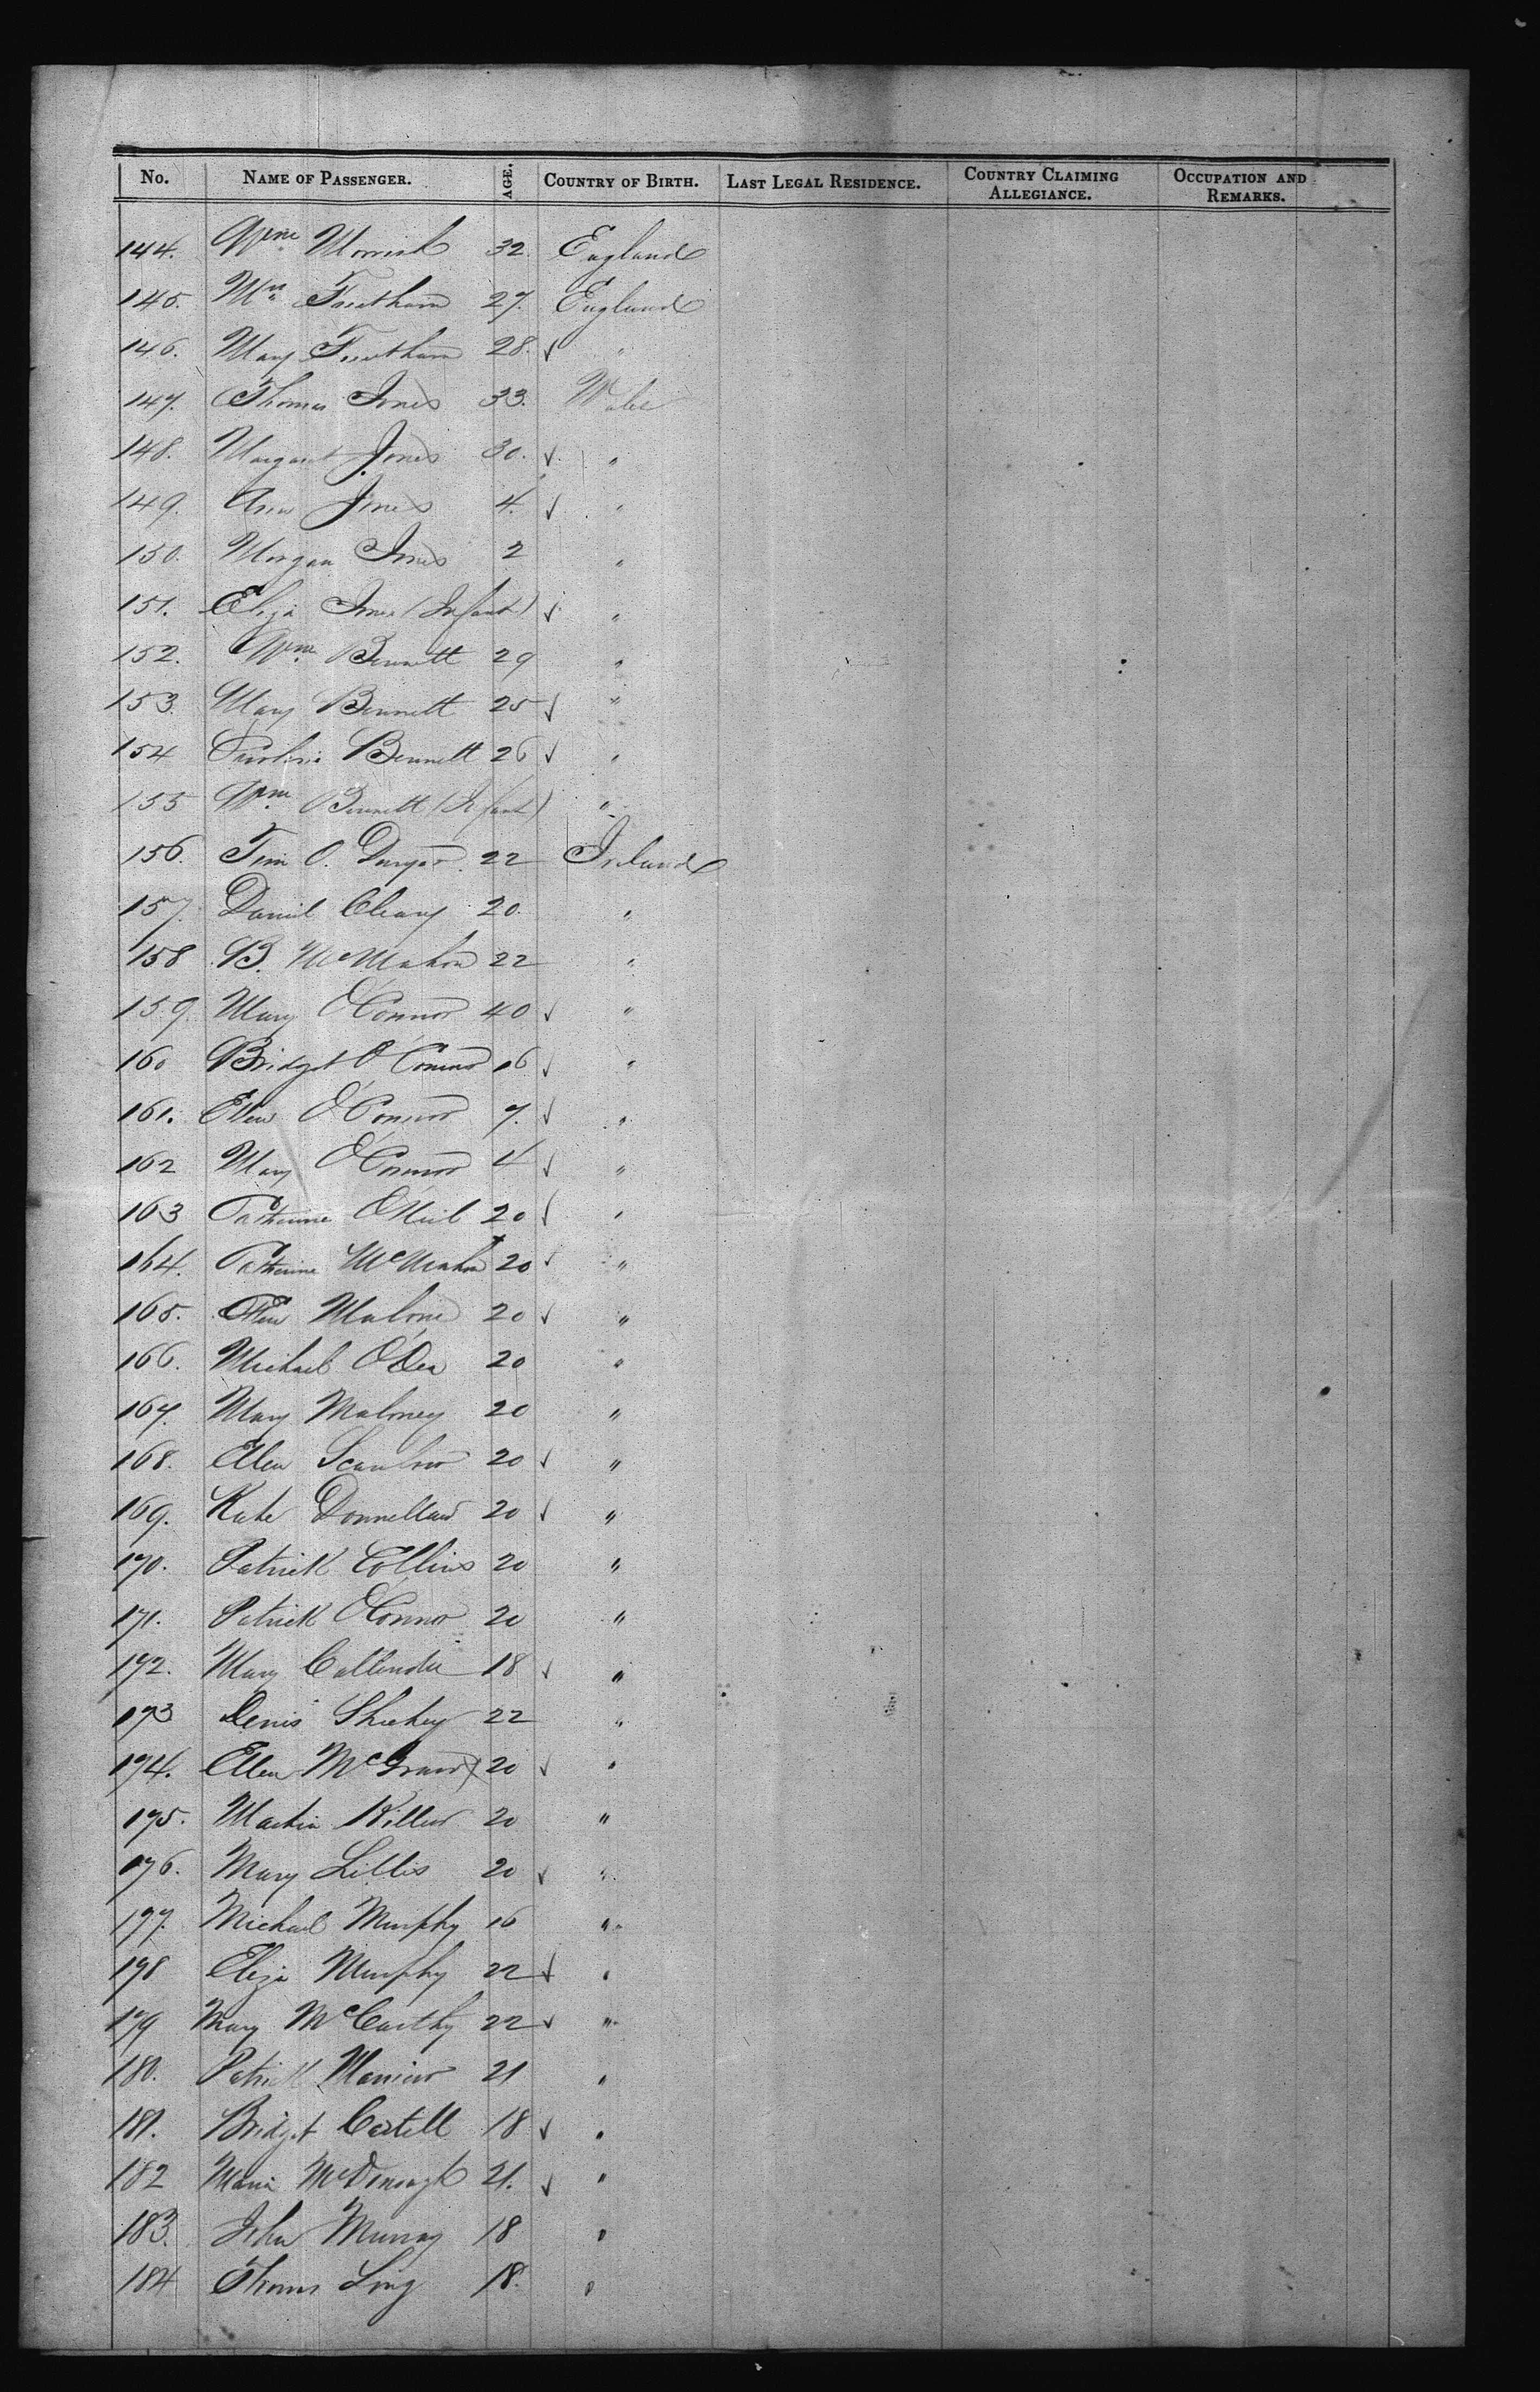 No. NAME OF PASSENGER. AGE. COUNTRY OF BIRTH. LAST LEGAL RESIDENCE. COUNTRY CLAIMING ALLEGIANCE. OCCUPATION AND REMARKS.
144. Wm 32. England
145. 27. England
146. Mary 28. ✓ "
147. Thomas Jones 33. Wales
148. Margaret Jones 30. ✓ "
149. Ann Jones 4. ✓ "
150. Morgan Jones 2 "
151. Eliza Jones (Infant) ✓ "
152. Wm. Bennett 29 "
153. Mary Bennett 25 ✓ "
154 Bennett 26 ✓ "
155 Wm. Bennett (Infant) "
156. Tim O. 22 Ireland
157. Daniel Cleary 20. "
158 B. McMahon 22 "
159. Mary O'Connor 40 ✓ "
160 Bridget O'Connor 16 ✓ "
161. Ellen O'Connor 7. ✓ "
162 Mary O'Connor 4 ✓ "
163 Catherine O'Neil 20 ✓ "
164. Catherine McMahon 20 ✓ "
165. Ellen Malone 20 ✓ "
166. Michael O'Dea 20 "
167. Mary Maloney 20 "
168. Ellen Scanlon 20 ✓ "
169. Kate Donnellan 20 ✓ "
170. Patrick Collins 20 "
171. Patrick O'Connor 20 "
172. Mary 18 ✓ "
173 Denis Sheehey 22 "
174. Ellen 20 ✓ "
175. Martin Killen 20 "
176. Mary Lillis 20 ✓ "
177. Michael Murphy 16 "
178 Eliza Murphy 22 ✓ "
179 Mary McCarthy 22 ✓ "
180. Patrick 21 "
181. Bridget 18 ✓ "
182 Maria McDonough 21. ✓ "
183. John Murray 18 "
184 Thomas Long 18. "